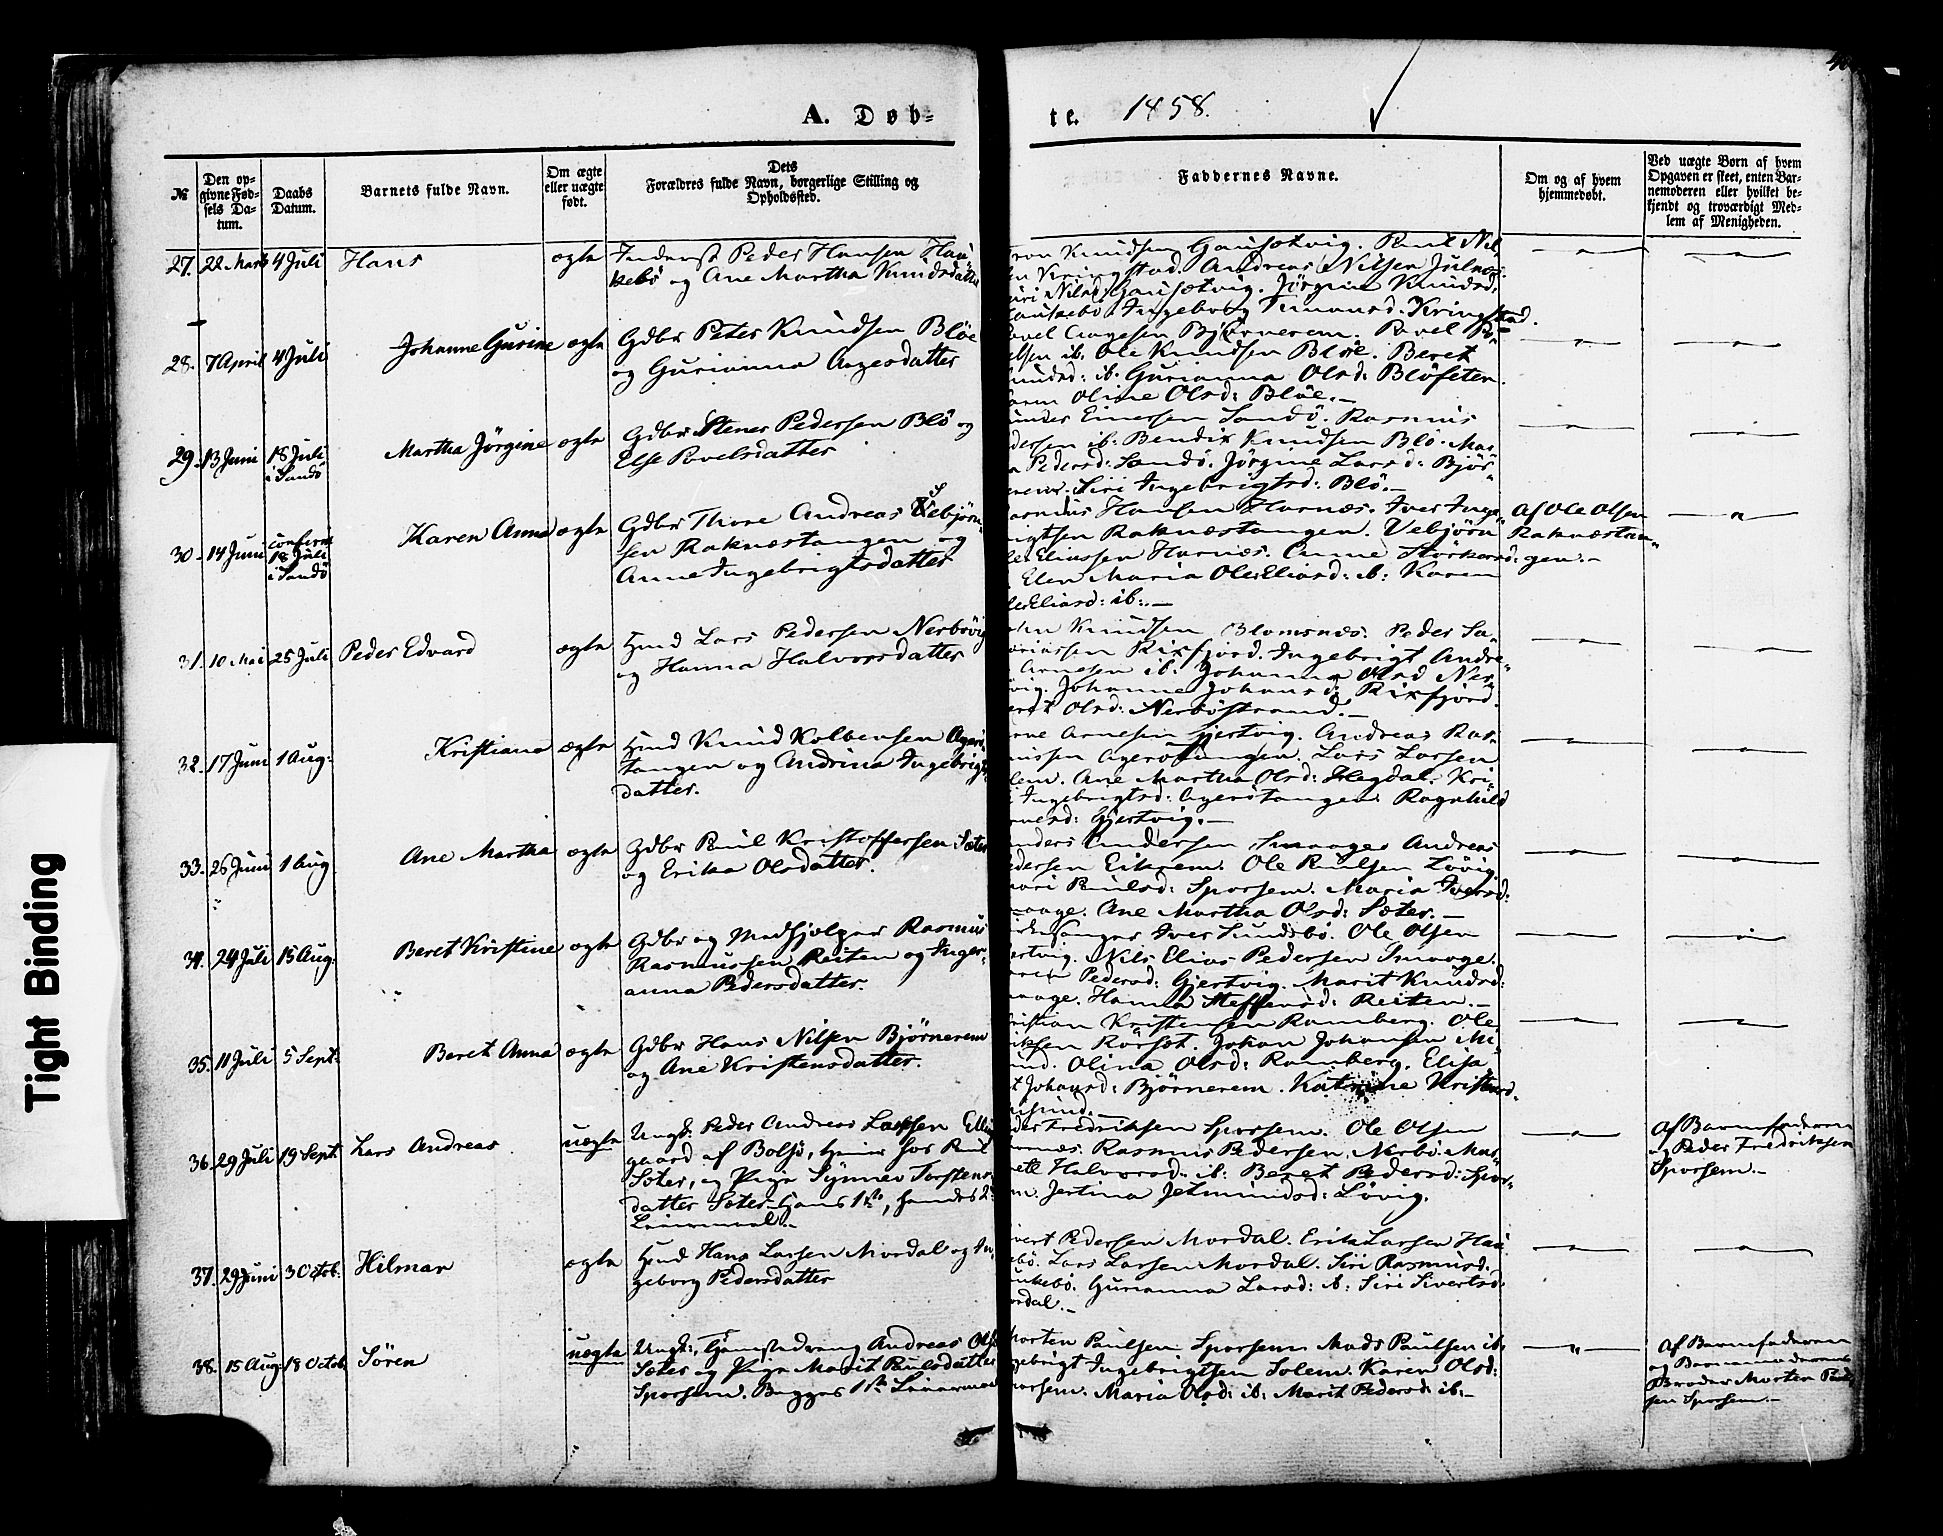 A. Døb-
te. 1858.
№
Den opgivne Fødsels Datum.
Daabs Datum.
Barnets fulde Navn.
Om ægte eller uægte født.
Dets Forældres fulde Navn, borgerlige Stilling og Opholdssted.
Faddernes Navne.
Om og af hvem hjemmedøbt.
Ved uægte Børn af hvem Opgaven er skeet, enten Barnemoderen eller hvilket bekjendt og troværdigt Medlem af Menigheden.
27. 22 Marts 4 Juli Hans ægte Inderst Peder Hansen Hau-
kebø og Ane Martha Knudsdatter
Knudsen Gausetvig. Poul Nil
Kringstad. Andreas Nilsen Julnes.
Nilsd: Gausetvig. Jörgine Knudsd.
Ingeborg Kringstad.
28. 7 April 4 Juli Johanne Gurine ægte Gdbr Peter Knudsen Bløe
og Gurianna Aagesdatter
Aagesen Bjørnerem. Povel
ib. Ole Knudsen Bløe. Beret
ib. Gurianna Olsd: Bløseter.
Oline Olsd: Bløe.-
29. 13 Juni 18 Juli i Sandø Martha Jørgine ægte Gdbr Stener Pedersen Blø og
Else Povelsdatter
Einersen Sandö. Rasmus
dersen ib: Bendix Knudsen Blø. Mar
Pedersd: Sandö. Jørgine Larsd: Bjør"
Siri Ingebrigtsd: Blø.-
30. 14 Juni confirm 18 Juli i Sandø Karen Anna ægte Gdbr Thore Andreas Sebjørn
sen Raknæstangen og
Anne Ingebrigtsdatter
Hansen Harnæs. Iver Inge"
brigtsen Raknæstangen. Vebjørn
Eliassen Harnæs. Anne Störkersd:
Elen Maria Ole Eliasd: ib: Karen
Ole Eliasd: ib:.-
Af Ole Olsen
Raknæstan"
gen.-
31. 10 Mai 25 Juli Peder Edvard ægte Hmd Lars Pedersen Nerbøvig
og Hanna Halvorsdatter
Knudsen Blomsnæs. Peder Sa"
Rixfjord. Ingebrigt Andre"
Arnesen ib: Johanna Olsd Ner"
Johanne Johansd: Rixfjord.
Olsd: Nerbøstrand.-
32. 17 Juni 1 Aug: Kristiane ægte Hmd Knud Kolbensen Agerø
tangen og Andrina Ingebrigts
datter.
Arnesen Gjertvig. Andreas Ras"
mussen Agerøtangen. Lars Larsen
Ane Martha Olsd: Hegdal. Kri"
Ingebrigtsd: Agerøtangen. Ragnhild
Gjertvig.-
33. 26 Juni 1 Aug. Ane Martha ægte Gdbr Poul Kristoffersen Sæter
og Erika Olsdatter.
Andersen Smaage. Andreas
Pedersen Eikrem. Ole Poulsen Løvig.
Poulsd: Sporsem. Maria Iversd:
Smaage. Ane Martha Olsd: Sæter.-
34. 24 Juli 15 Aug. Beret Kristine ægte Gdbr og Medhjelper Rasmus
Rasmussen Reiten og Inger"
anna Pedersdatter.
Kirkesanger Iver Sundsbö. Ole Olsen
Gjertvig. Nils Elias Pedersen Smaage.
Pedersd: Gjertvig. Marit Knudsd:
Smaage. Hanna Steffensd: Reiten.-
35. 11 Juli 5 Sept: Beret Anna ægte Gdbr Hans Nilsen Bjørnerem
og Ane Kristensdatter.
Kristian Kristensen Ramberg. Ole
Rörset. Johan Johansen Mi"
sund. Olina Olsd: Ramberg. Elisa"
Johansd: Bjørnerem. Katrine Kristensd.
Misund.-
36. 29 Juli 19 Sept. Lars Andreas uægte Ungk: Peder Andreas Larssen Elling
gaard af Bolsø, hos Poul
Sæter, og Pige Synnev Torstens
datter Sæter. Hans 1ste, hendes 2
Leiermaal.-
Peder Fredriksen Sporsem. Ole Olsen
Rasmus Pedersen Nerbö. Mar"
Halvorsd: ib: Beret Pedersd: Spor"
sem. Jertina Jetmundsd: Løvig.
Af Barnefaderen
og Peder Fredriksen
Sporsem.-
37. 29 Juni 3 Octob. Hilmar ægte Hmd Hans Larsen Mordal og In"
geborg Pedersdatter
Sivert Pedersen Mordal. Erik Larsen Hau"
kebø. Lars Larsen Mordal. Siri Rasmusd.
Haukebø. Gurianna Larsd: ib: Siri Sivertsd:
Mordal.-
38. 15 Aug. 18 Octob. Søren uægte Ungk:, Gaardsdreng Andreas Olsen
Sæter og Pige Marit Paulsdatter
Sporsem. Begges 1ste Leiermaal
Morten Paulsen Sporsem Mads Paulsen ib:
Ingebrigt Ingebrigtsen Solem. Karen Olsd:
Sporsem. Maria Olsd: ib: Marit Pedersd: ib:-
Af Barnefaderen
og Barnemoderens
Broder Morten Paul"
sen Sporsem.-
Tight Binding